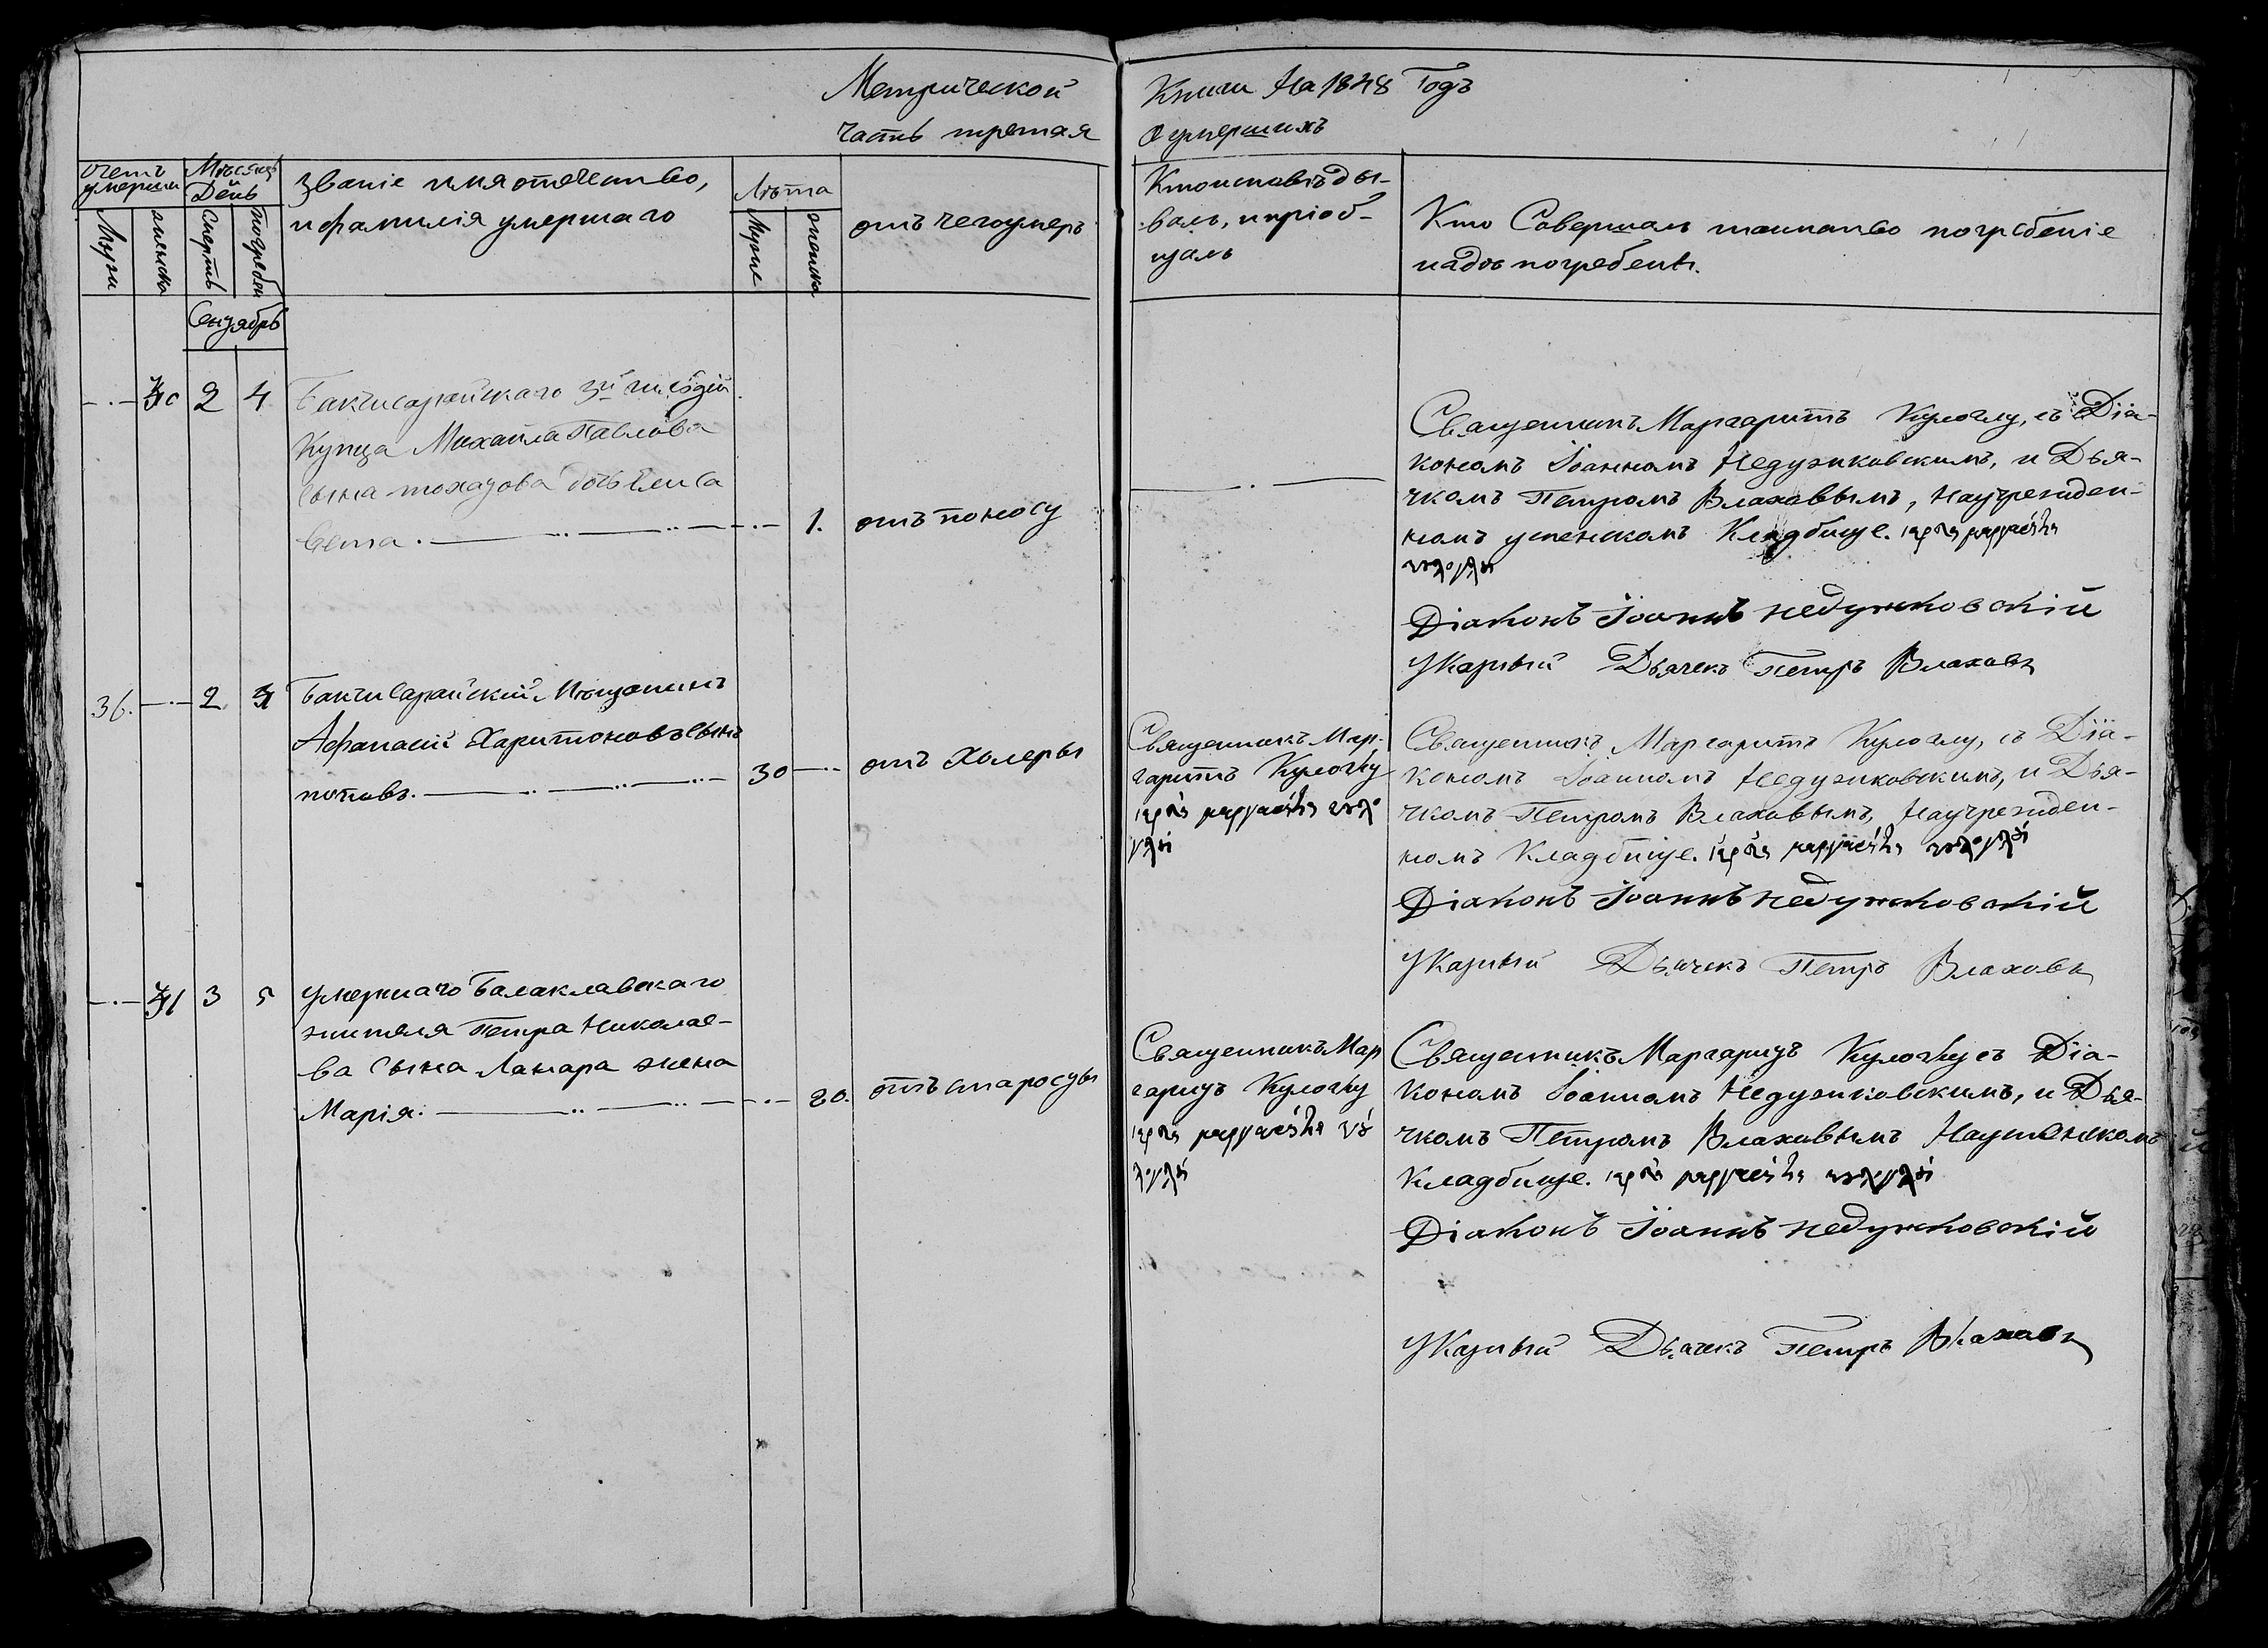 Метрической Книги На 1848 Годъ
Часть третая о умершихъ
Счетъ умерши
Мѣсяцъ и День
Званіе имя отечество,
и фамилія умершаго
Лѣта
отъ чего умеръ
Кто исповѣды-
валъ, и пріоб-
щалъ
Кто Савершал таинство погребеніе
Мужи
женска
Смерть
погребен
Муже
женска
Сендябрь
40 2 4 Бакчисарайскаго 3й гилдіи
Купца Михаила Павлова
сына дочь Елиса
вета. 1. отъ поносу
Священникъ Маргаритъ Кулоглу, съ Діа-
кономъ Іоанномъ Недузиковскимъ, и Дья-
чкомъ Петромъ Влаховымъ, На учрежден-
номъ Кладбище.
Діаконъ Іоаннъ недужковскій
Указный Дьячекъ Петръ Влаховъ
36. 2 4 Бакчисарайскій Мѣщанинъ
Афанасій Харитоновъ сынъ
поповъ. 30 отъ Холеры
Священникъ Мар-
гаритъ Кулоглу
Священникъ Маргаритъ Кулоглу, съ Діа-
кономъ Іоанномъ Недузиковскимъ, и Дья-
чкомъ Петромъ Влаховымъ, На учрежден-
номъ Кладбище.
Діаконъ Іоаннъ недужковскій
Указный Дьячекъ Петръ Влаховъ
41 3 5 умершаго Балаклавскаго
жителя Петра Николае-
ва сына жена
Марія. отъ старосды
Священникъ Мар
гаридъ Кулоглу
Священникъ Маргаридъ Кулоглу съ Діа-
кономъ Іоанномъ Недузиковскимъ, и Дья-
чкомъ Петромъ Влаховымъ
Кладбище.
Діаконъ Іоаннъ недужковскій
Указный Дьячекъ Петръ Влаховъ